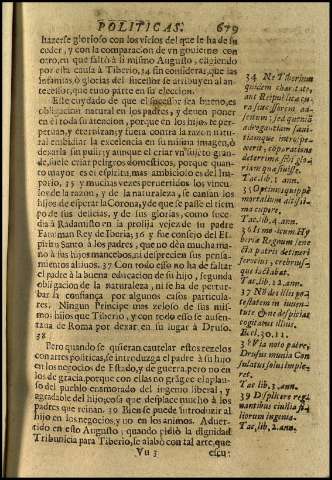 POLITICAS. 679
hazerse glorioso con los vicios del que le ha de su
ceder, y con la comparacion de vn gouierno con
otro, en que faltò à si mismo Augusto, eligiendo
por esta causa à Tiberio, 34 sin considerar, que las
infamias, ò glorias del sucessor se atribuyen al an-
tecessor, que tuuo parte en su eleccion.
Este cuydado de que el sucessor sea bueno, es
obligacion natural en los padres, y deuen poner
en èl toda su atencion, porque en los hijos se per-
petuan, y eternizan; y fuera contra la razon natu-
ral embidiar la excelencia en su misma imagen, ò
dexarla sin pulir; y aunque el criar vn sugeto gran-
de, suele criar peligros domesticos, porque quanto
mayor es el espiritu, mas ambicioso es del Im-
perio, 35 y muchas vezes peruertidos los vincu-
los de la razon, y de la naturaleza, se cansan los
hijos de esperar la Corona, y de que se passe el tiem
po de sus delicias, y de sus glorias, como suce-
diò à Radamisto en la prolija vejez de su padre
Farasman Rey de Iberia; 36 y fue consejo del Es-
piritu Santo à los padres, que no dèn mucha ma-
no à sus hijos mancebos, ni desprecien sus pensa-
mientos altiuos. 37 Con todo esso no ha de faltar
el padre à la buena educacion de su hijo, segunda
obligacion de la naturaleza, ni se ha de pertur-
bar la confiança por algunos casos particula-
res. Ningun Principe mas zeloso de sus mis-
mos hijos que Tiberio, y con todo esso se ausen-
taua de Roma por dexar en su lugar à Druso.
38
Pero quando se quieran cautelar estos rezelos
con artes politicas, se introduzga el padre à su hijo
en los negocios de Estado, y de guerra, pero no en
los de gracia, porque con ellas no grangee el aplau-
so del pueblo enamorado del ingenio liberal, y
agradable del hijo; cosa que desplace mucho à los
padres que reinan. 39 Bien se puede introduzir al
hijo en los negocios, y no en los animos. Aduer-
tido en esto Augusto, quando pidiò la dignidad
Tribunicia para Tiberio, le alabò con tal arte, que
Vu 3 escu-
34 Ne Tiberium
quidem charitate,
aut Reipublicæ cu-
ra successorem ad-
scitum; sed quoniã
adrogantiam sæui-
tiamque introspe-
xerit, comparatione
deterrima sibi glo-
riam quæsiuisse.
Tac. lib. 1. ann.
35 Optimos quippè
mortalium altissi-
ma cupere.
Tac. lib. 4. ann.
36
Tac. lib. 12. ann.
37 Ne des illi po
testatem in iuuen-
tute, &amp; ne despicias
cogitatus illius.
Eccl. 30. 11.
38 Vt
Tac. lib. 3. ann.
39 Displicere reg-
nantibus ciuilia fi-
liorum ingenia.
Tac. lib. 2. ann.